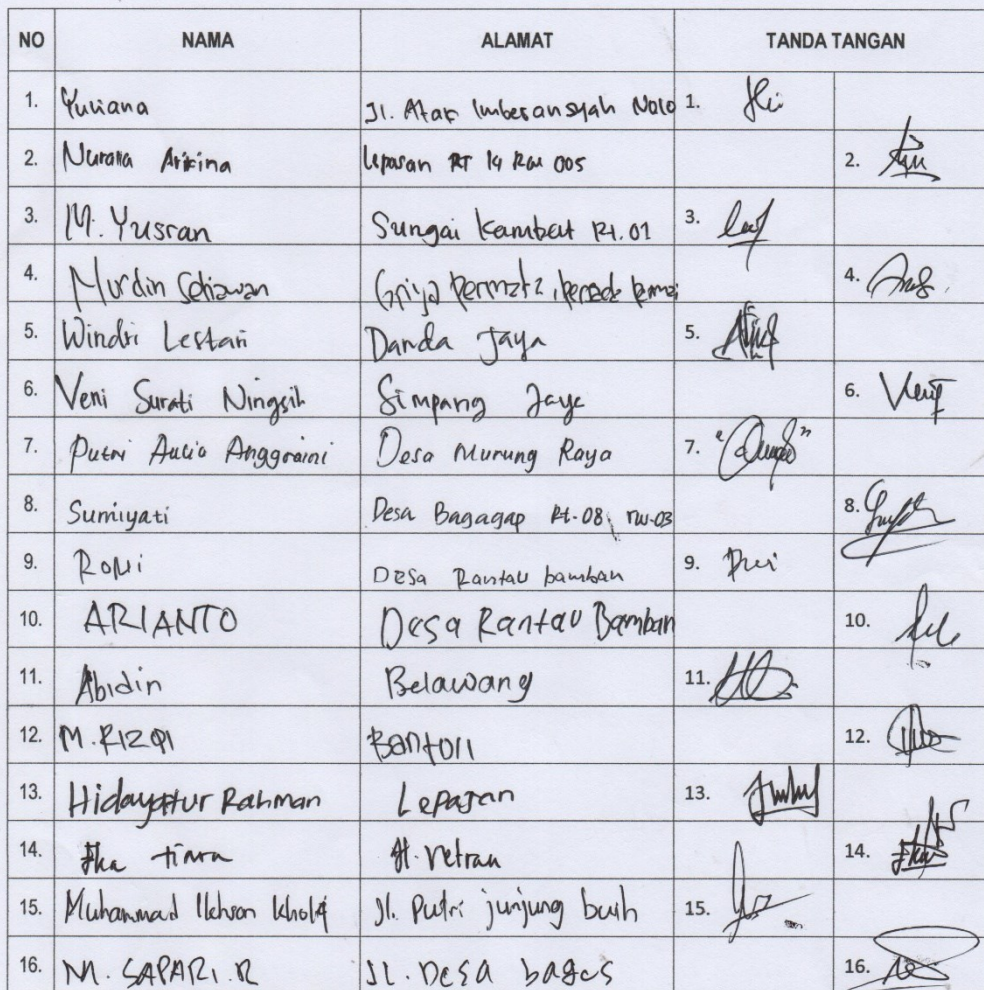 NO NAMA ALAMAT TANDA TANGAN
1. Yuliana Jl. Atak Imberansyah No10 1.
2. Nurana Arikina Leparan RT 14 RW 005 2.
3. M. Yusran Sungai Kambat Rt.01 3.
4. Nurdin Setiawan Griya permata, 4.
5. Windri Lestari Danda Jaya 5.
6. Veni Surati Ningsih Simpang Jaya 6.
7. Putri Aulia Anggraini Desa Murung Raya 7.
8. Sumiyati Desa Bagagap Rt.08 rw.03 8.
9. Romi Desa Rantau bamban 9.
10. ARIANTO Desa Rantau Bamban 10.
11. Abidin Belawang 11.
12. M. RIZQI Bantoil 12.
13. Hidayatur Rahman Lepasan 13.
14. Ika tiara Jl. Vetran 14.
15. Muhammad Ikhsan Kholif Jl. Putri junjung buih 15.
16. M. SAPARI. R JL. Desa bagus 16.